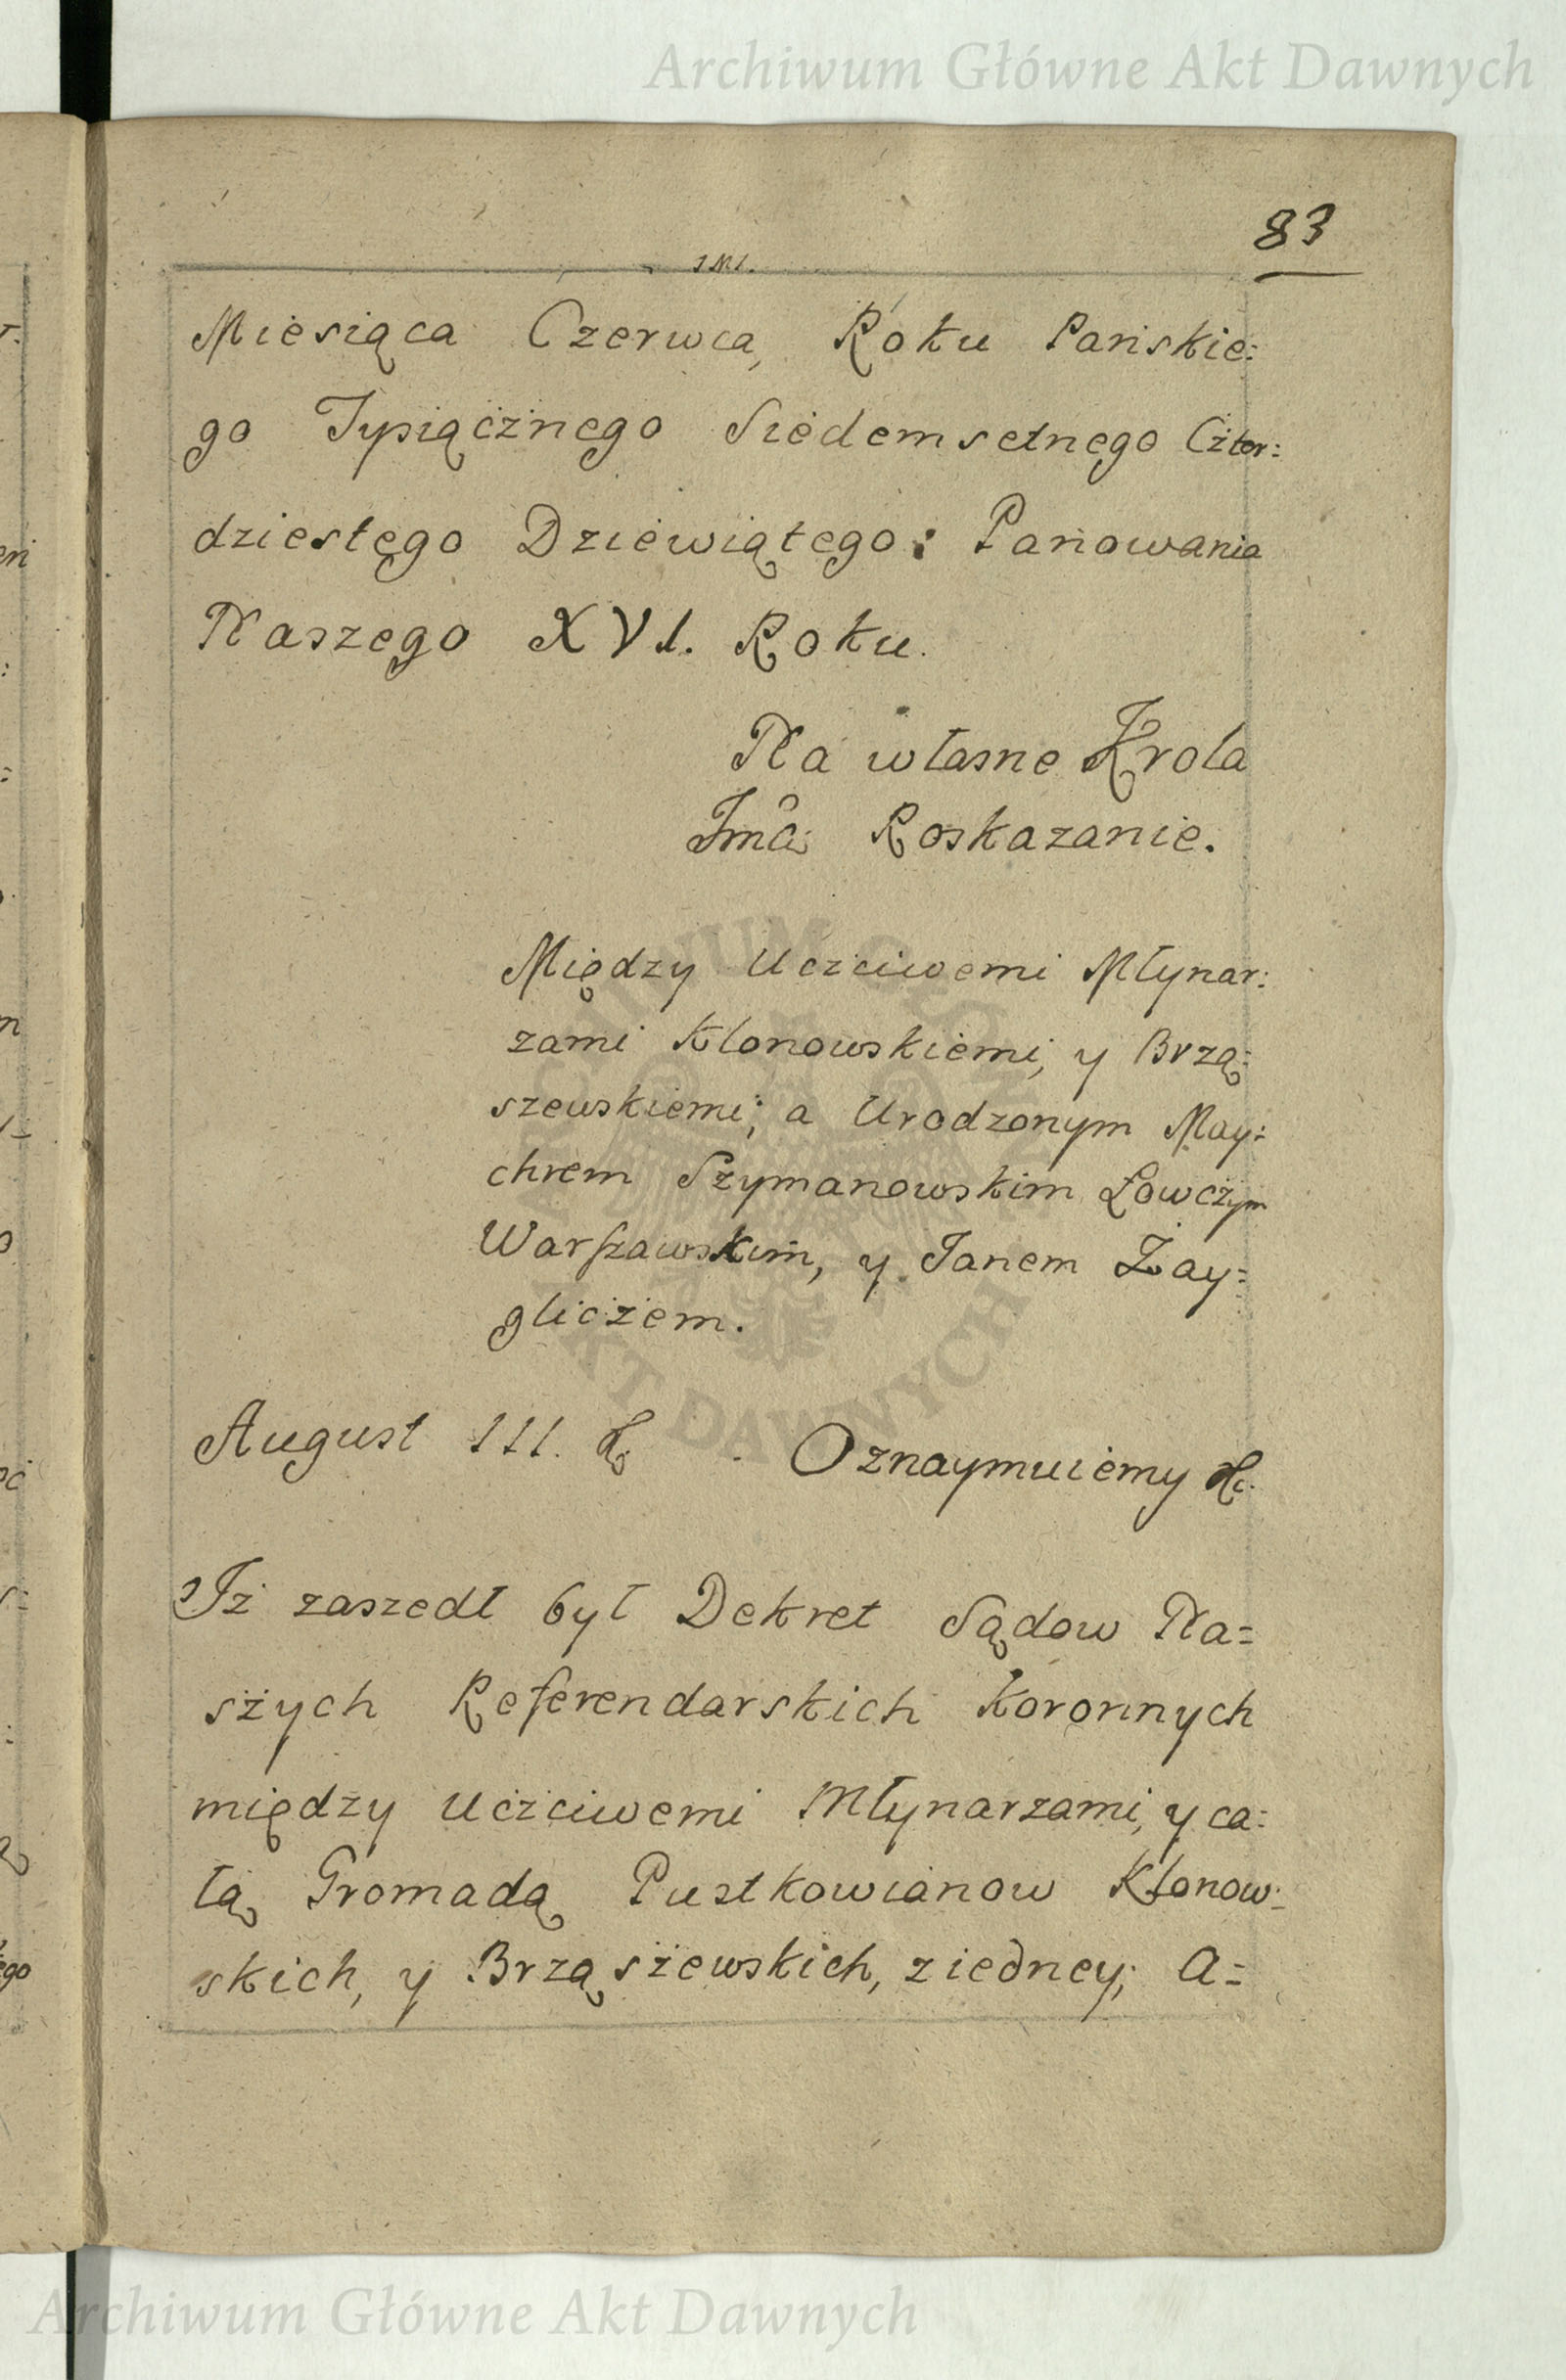 Archiwum Główne Akt Dawnych
83
J M J.
Miesiąca Czerwca, Roku Pańskie:
go Tysiącżnego Siedemsetnego Cżter:
dziestego Dziewiątego: Panowania
Naszego XVI. Roku.
Na własne Krola
Jmći Roskazanie.
Między Uczciwemi Młynar:
zami Klonowskiemi, y Brzą:
szewskiemi; a Urodzonym May:
chrem Szymanowskim Łowcżym
Warszawskim, y Janem Żay:
gliczem.
August III. &c. Oznaymuiemy &c.
Iż zaszedł był Dekret Sądow Na=
szych Referendarskich Koronnych
między Uczciwemi Młynarzami, y ca:
łą Gromadą Pustkowianow Kłonow:
skich, y Brząszewskich, z iedney; A=
ARCHIWUM GŁÓWNE AKT DAWNYCH
Archiwum Główne Akt Dawnych